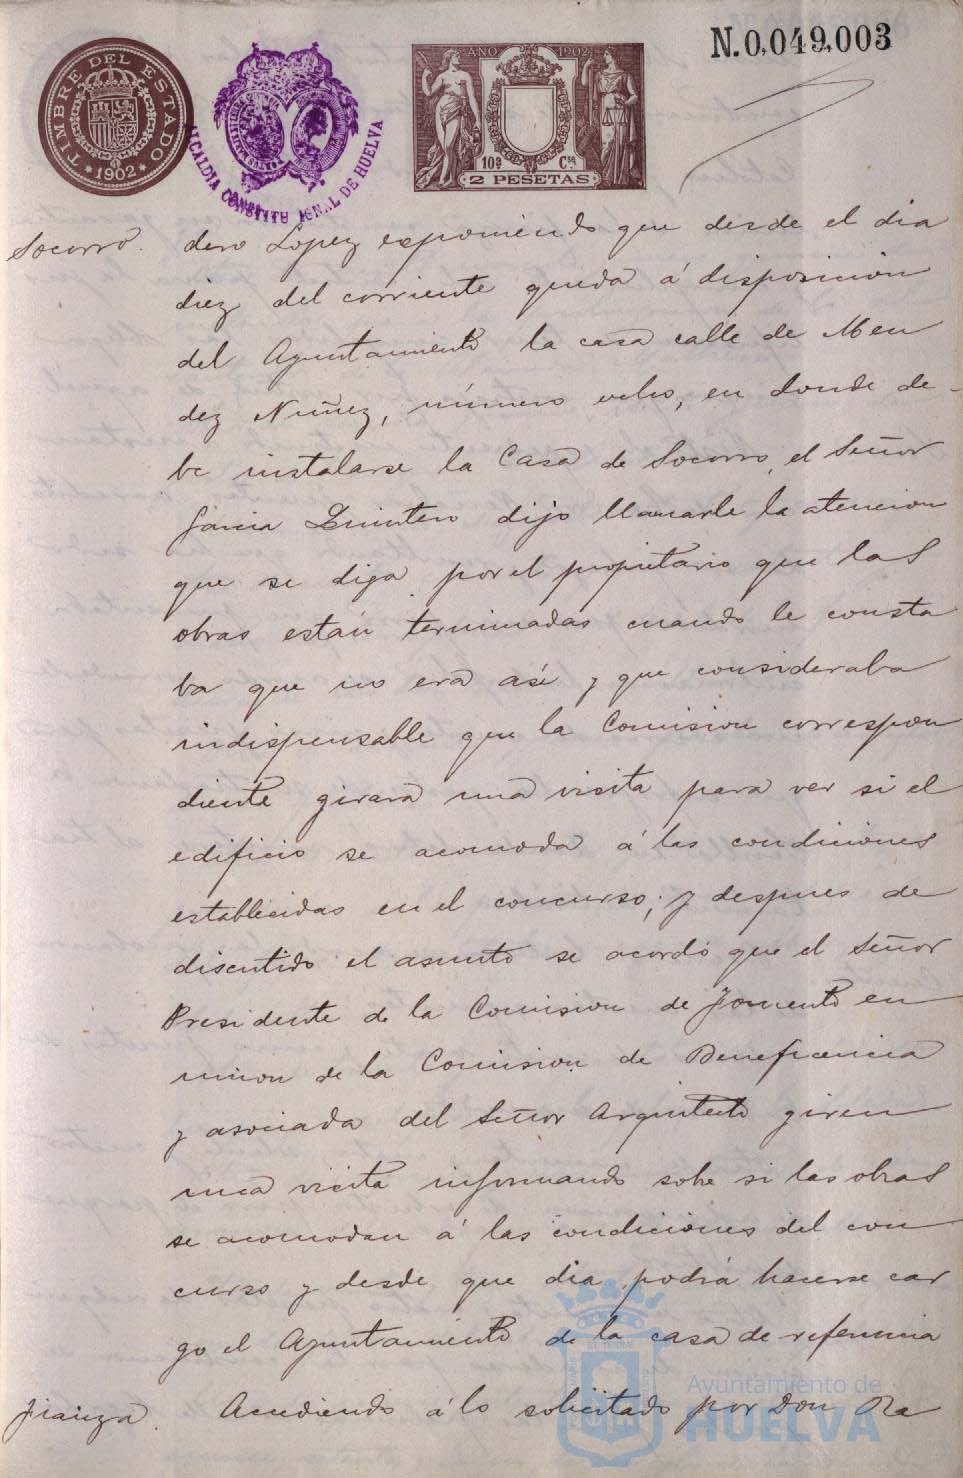 N.0,049,003
TIMBRE DEL ESTADO
1902
ALCALDIA CONSTITU IONAL DE HUELVA
AÑO 1902
10ª Csª
2 PESETAS
Socorro. dero Lopez exponiendo que desde el dia
diez del corriente queda á disposicion
del Ayuntamiento la casa calle de Men
dez Nuñez, número ocho, en donde de-
be instalarse la Casa de Socorro, el Señor
Garcia Quintero dijo llamarle la atencion
que se diga por el propietario que las
obras están terminadas cuando le consta
ba que no era asi y que consideraba
indispensable que la Comision correspon
diente girara una visita para ver si el
edificio se acomoda á las condiciones
establecidas en el concurso; y despues de
discutido el asunto se acordó que el Señor
Presidente de la Comision de Fomento en
union de la Comision de Beneficencia
y asociada del Señor Arquitecto giren
una visita informando sobre si las obras
se acomodan á las condiciones del con
curso y desde que dia podrá hacerse car
go el Ayuntamiento de la casa de referencia
Fianza. Accediendo á lo solicitado por Don Ra
Ayuntamiento de
HUELVA